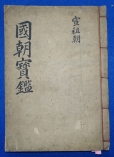 國朝寶鑑
宣祖朝